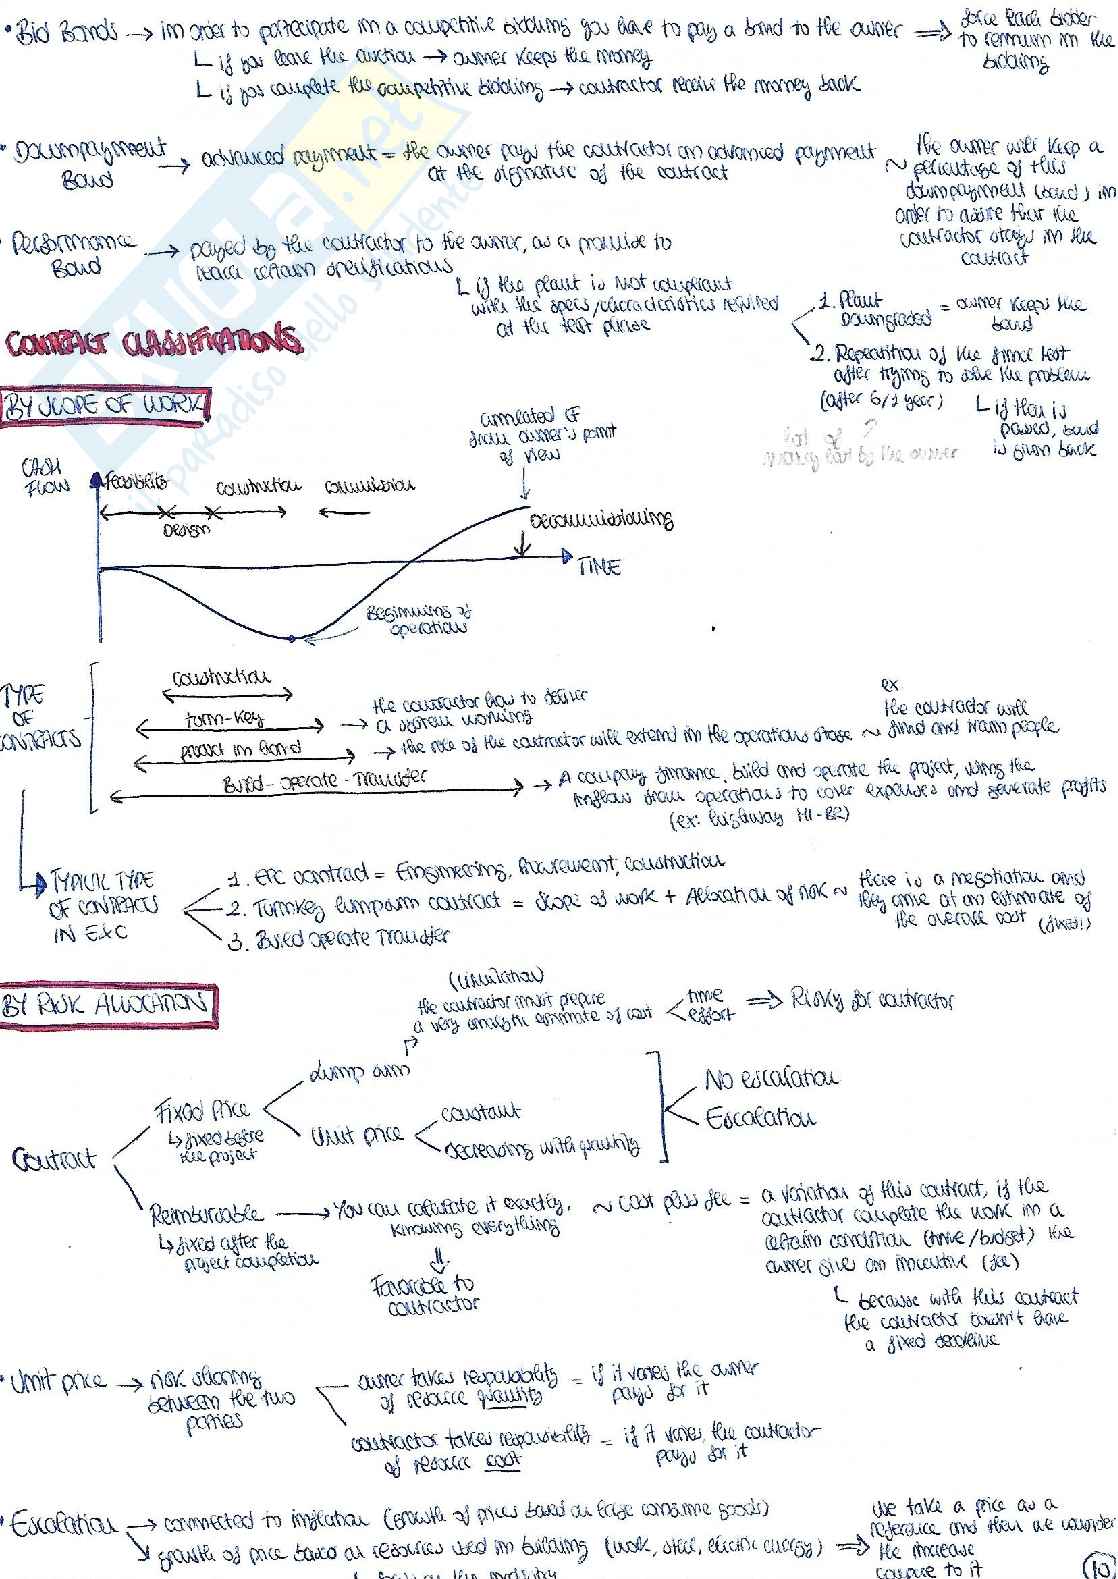 • Bid Bonds → in order to partecipate in a competitive bidding you have to pay a bond to the owner ⇒ force each bidder
to remain in the
bidding
if you leave the auction → owner keeps the money
if you complete the competitive bidding → contractor receive the money back
• Downpayment
Bond
→ advanced payment = the owner pays the contractor an advanced payment
at the signature of the contract
~ the owner will keep a
percentage of this
downpayment (bond) in
order to assure that the
contractor stays in the
contract
• Performance
Bond
→ payed by the contractor to the owner, as a promise to
reach certain specifications
if the plant is not compliant
with the specs/characteristics required
at the test phase
1. Plant
Downgraded = owner keeps the
bond
2. Repetition of the final test
after trying to solve the problem
(after 6/1 year)
if this is
passed, bond
is given back
CONTRACT CLASSIFICATIONS
BY SCOPE OF WORK
cumulated CF
from owner's point
of view
by the owner
CASH
FLOW
Feasibility
Design
construction
commission
Decommissioning
TIME
Beginning of
operations
TYPE
OF
CONTRACTS
construction
turn-key → the contractor has to deliver
a system working
product in hand → the role of the contractor will extend in the operations stage ~ ex
the contractor will
find and train people
Build-operate-Transfer → A company finance, build and operate the project, using the
inflow from operations to cover expenses and generate profits
(ex: highway MI-BZ)
TYPICAL TYPE
OF CONTRACTS
IN E&C
1. EPC contract = Engineering, Procurement, construction
2. Turnkey lumpsum contract = Scope of work + Allocation of risk ~ there is a negotiation and
they arrive at an estimate of
the overall cost (fixed!)
3. Build operate Transfer
BY RISK ALLOCATION
(simulation)
the contractor must prepare
a very analytic estimate of cost
time
effort
⇒ Risky for contractor
Contract
Fixed Price
↳ fixed before
the project
Lump sum
Unit price
constant
decreasing with quantity
No escalation
Escalation
Reimbursable
↳ fixed after the
project completion
→ You can calculate it exactly,
knowing everything
Favorable to
contractor
~ Cost plus fee = a variation of this contract, if the
contractor complete the work in a
certain condition (time/budget) the
owner give an incentive (fee)
because with this contract
the contractor doesn't have
a fixed deadline
• Unit price → risk sharing
between the two
parties
owner takes responsibility
of resource quantity = if it varies the owner
pays for it
contractor takes responsibility
of resource cost = if it varies, the contractor
pays for it
• Escalation → connected to inflation (growth of prices based on large consume goods)
growth of price based on resources used in building (work, steel, electric energy) ⇒ we take a price as a
reference and then we consider
the increase
compare to it
10
.net
il paradiso dello studente